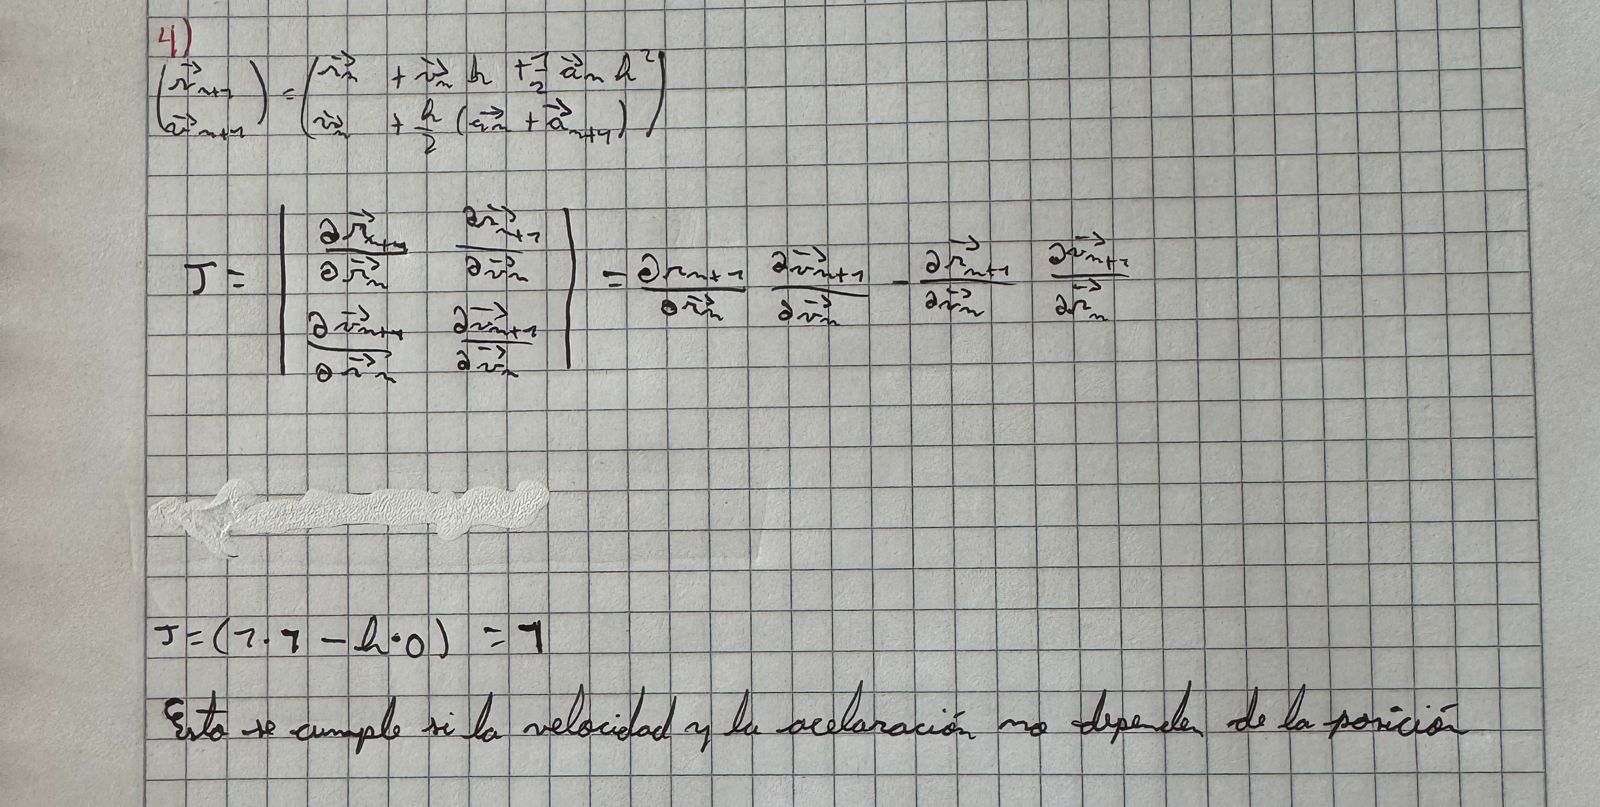 4)
(r⃗ₙ₊₁) = (r⃗ₙ + v⃗ₙ h + 1/2 a⃗ₙ h²)
(v⃗ₙ₊₁) (v⃗ₙ + h/2 (a⃗ₙ + a⃗ₙ₊₁))
J = | ∂r⃗ₙ₊₁/∂r⃗ₙ ∂r⃗ₙ₊₁/∂v⃗ₙ | = ∂rₙ₊₁/∂r⃗ₙ ∂v⃗ₙ₊₁/∂v⃗ₙ - ∂r⃗ₙ₊₁/∂v⃗ₙ ∂v⃗ₙ₊₁/∂r⃗ₙ
| ∂v⃗ₙ₊₁/∂r⃗ₙ ∂v⃗ₙ₊₁/∂v⃗ₙ |
J = (1·1 - h·0) = 1
Esto se cumple si la velocidad y la acelaración no dependen de la posición